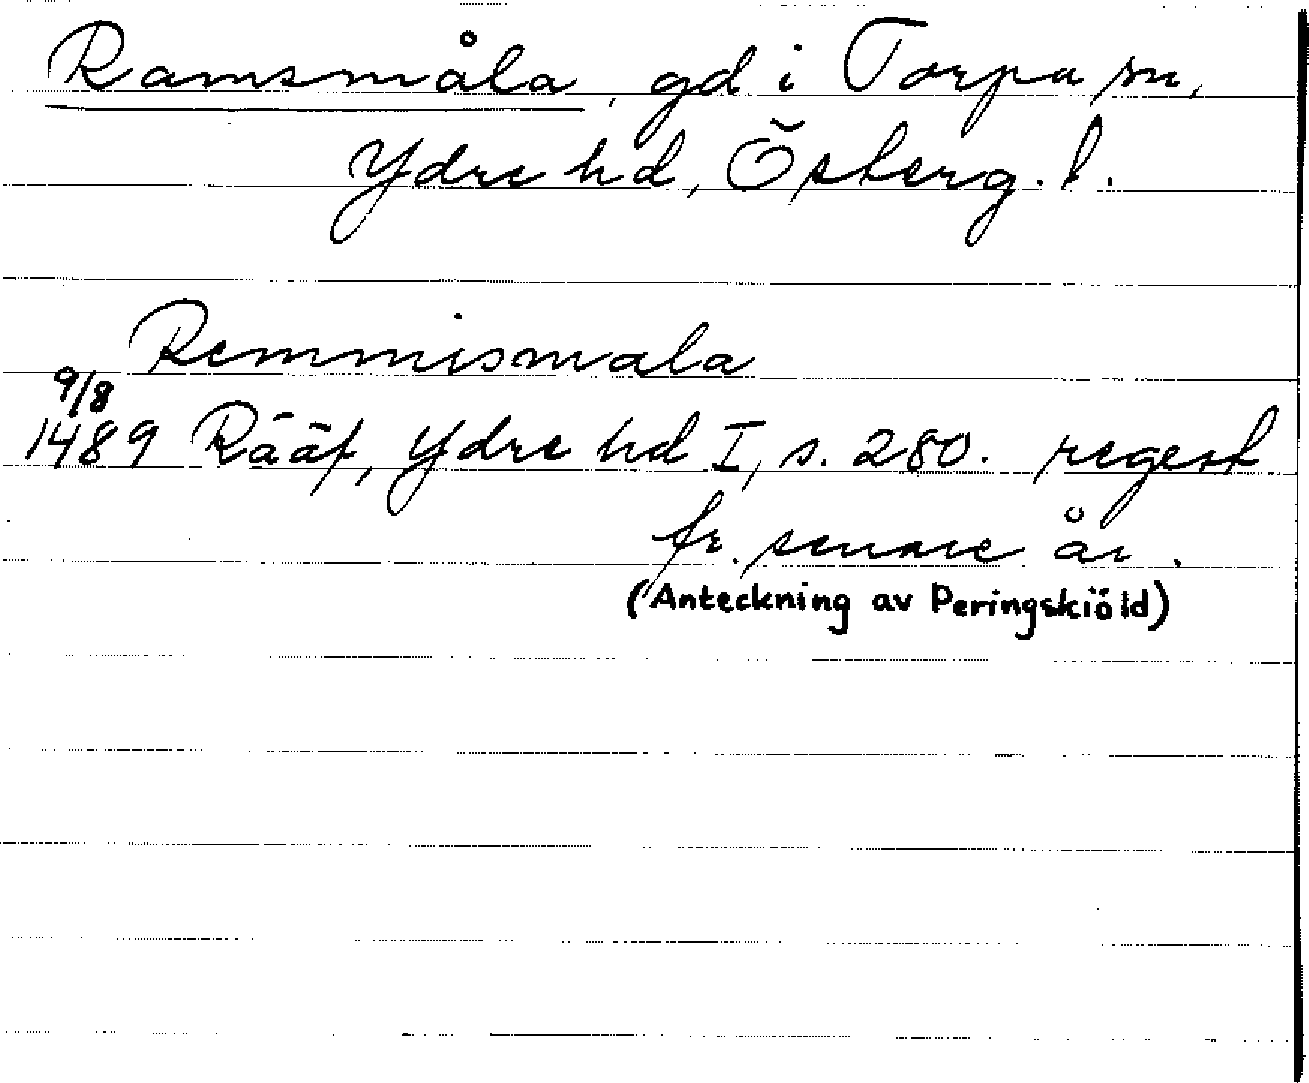 Ramsmåla, gd i Torpa sn,
Ydre hd, Österg. l.
Remmismala
9/8
1489 Rääf, Ydre hd I, s. 280. regest
fr. senare år.
(Anteckning av Peringskiöld)